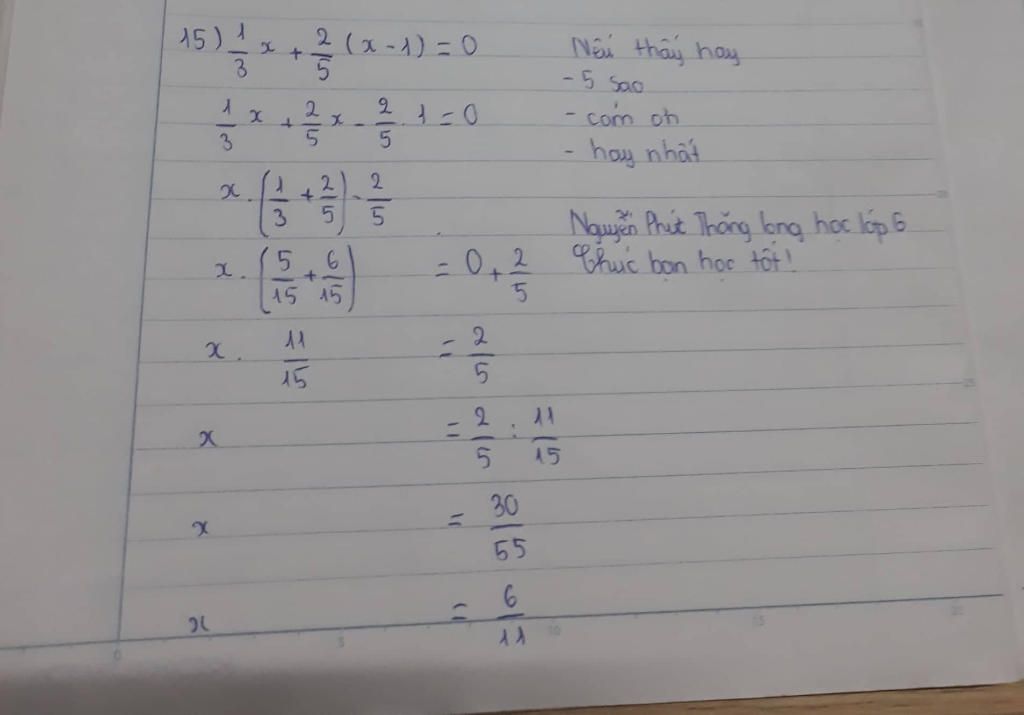 15) 1/3 x + 2/5 (x - 1) = 0
1/3 x + 2/5 x - 2/5 . 1 = 0
x . (1/3 + 2/5) - 2/5
x . (5/15 + 6/15) = 0 + 2/5
x . 11/15 = 2/5
x = 2/5 : 11/15
x = 30/55
x = 6/11
Nếu thấy hay
- 5 sao
- cảm ơn
- hay nhất
Nguyễn Phút Thăng long học lớp 6
Chúc bạn học tốt!
0 5 10 15 20